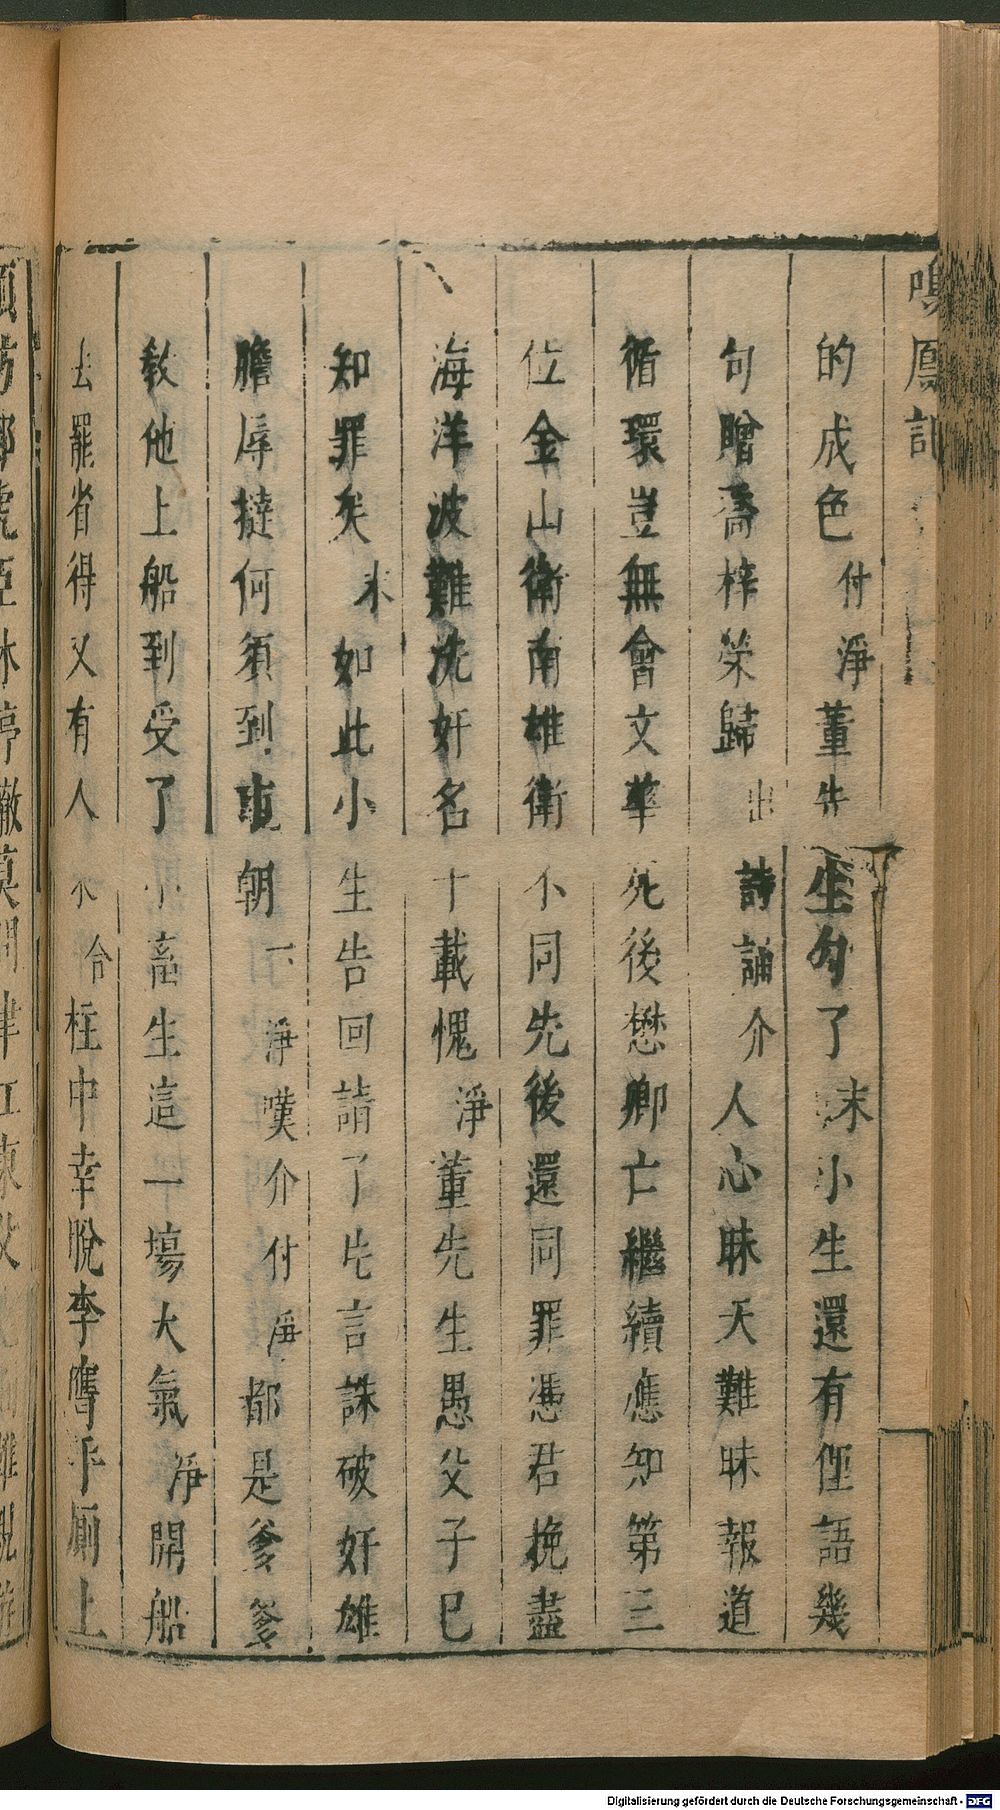 鳴鳳記
的成色付淨董先生勾了末小生還有俚語幾
句贈喬梓榮歸出詩誦介人心昧天難昧報道
循環豈無會文華死後懋卿亡繼續應知第三
位金山衛南雄衛不同先後還同罪憑君挽盡
海洋波難洗奸名十載愧淨董先生愚父子已
知罪矣末如此小生告回請了片言誅破奸雄
膽辱撻何須到朝下淨嘆介付淨都是爹爹
教他上船到受了小畜生這一場大氣淨開船
去罷省得又有人來合柱中幸脫李膺手廁上
Digitalisierung gefördert durch die Deutsche Forschungsgemeinschaft - DFG